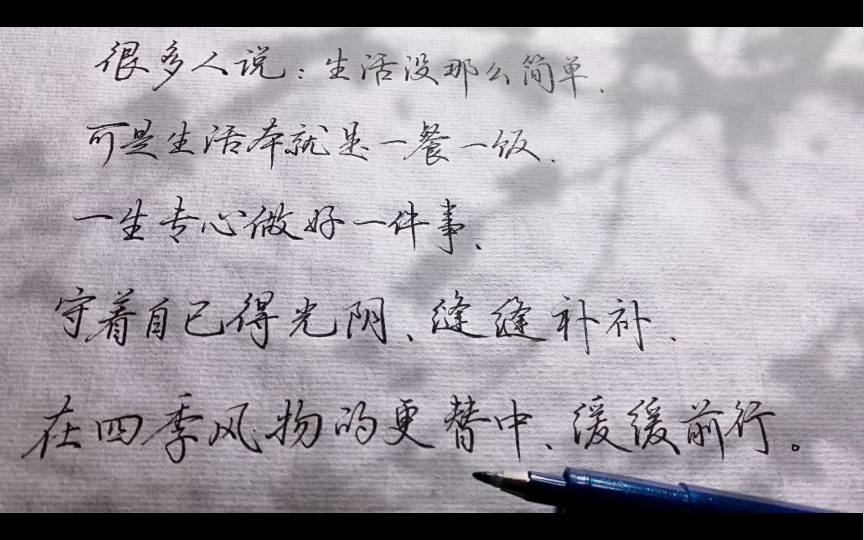 很多人说：生活没那么简单、
可是生活本就是一餐一饭、
一生专心做好一件事、
守着自己得光阴、缝缝补补、
在四季风物的更替中、缓缓前行。